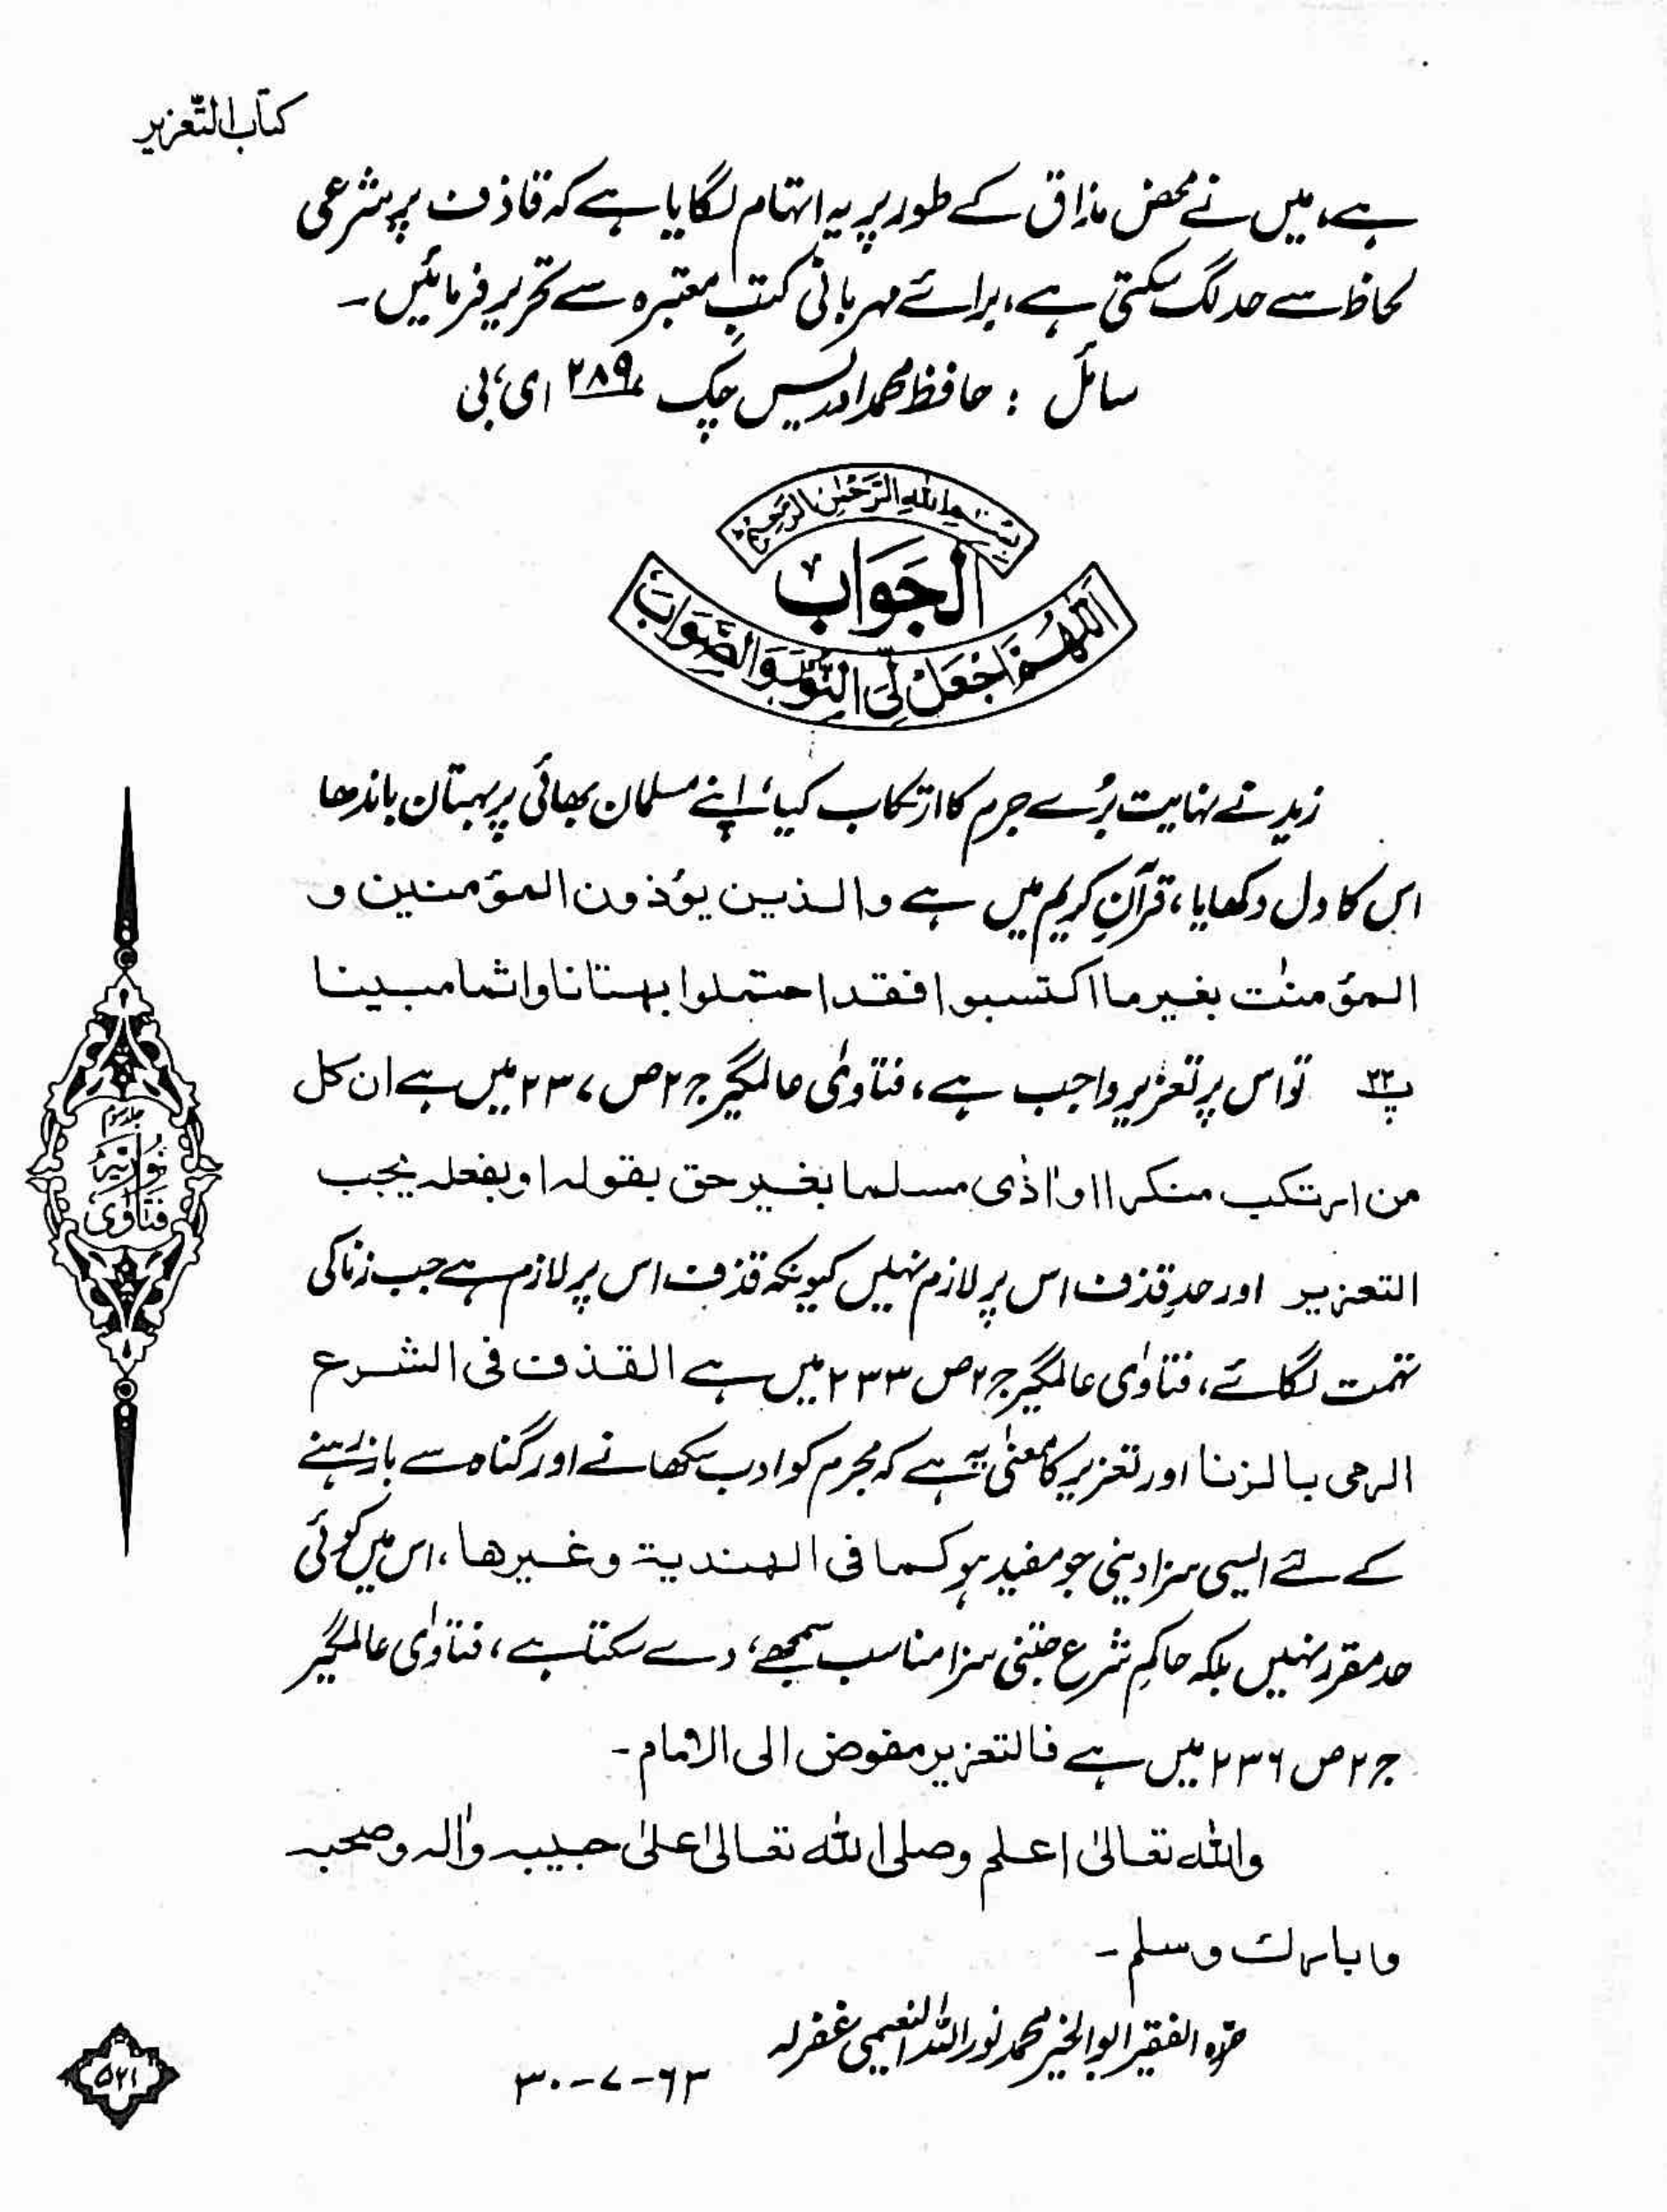 کتاب التعزیر
ہے، میں نے محض مذاق کے طور پر یہ اتہام لگایا ہے کہ قاذف پر شرعی
لحاظ سے حد لگ سکتی ہے، برائے مہربانی کتبِ معتبرہ سے تحریر فرمائیں۔
سائل : حافظ محمد ادریس چک ۲۸۹ ای، بی
بِسْمِ اللهِ الرَّحْمٰنِ الرَّحِيْمِ
اَلجَوَابُ
اَللّٰهُمَّ اجْعَلْ لِّیَ النُّوْرَ وَالصَّوَابَ
زید نے نہایت بُرے جرم کا ارتکاب کیا، اپنے مسلمان بھائی پر بہتان باندھا
اس کا دل دکھایا، قرآنِ کریم میں ہے والذین یؤذون المؤمنین و
المؤمنٰت بغیر ما اکتسبوا فقد احتملوا بهتانا واثما مبینا
پ۲۲ تو اس پر تعزیر واجب ہے، فتاویٰ عالمگیر ج ۲ ص ۲۳۷ میں ہے ان کل
من ارتکب منکرا او اٰذی مسلما بغیر حق بقوله او بفعله یجب
التعزیر اور حدِ قذف اس پر لازم نہیں کیونکہ قذف اس پر لازم ہے جب زنا کی
تہمت لگائے، فتاوٰی عالمگیر ج ۲ ص ۲۳۳ میں ہے القذف فی الشرع
الرمی بالزنا اور تعزیر کا معنیٰ یہ ہے کہ مجرم کو ادب سکھانے اور گناہ سے باز رہنے
کے لئے ایسی سزا دینی جو مفید ہو کما فی الهندیة وغیرها، اس میں کوئی
حد مقرر نہیں بلکہ حاکمِ شرع جتنی سزا مناسب سمجھے، دے سکتا ہے، فتاوٰی عالمگیر
ج ۲ ص ۲۳۶ میں ہے فالتعزیر مفوض الی الامام۔
والله تعالیٰ اعلم وصلی الله تعالیٰ علیٰ حبیبه واٰله وصحبه
وبارک وسلم۔
حرّرہ الفقیر ابو الخیر محمد نور اللہ النعیمی غفرلہ
۳۰-۷-۶۳
فتاویٰ
نوریہ
جلد دوم
۵۲۱